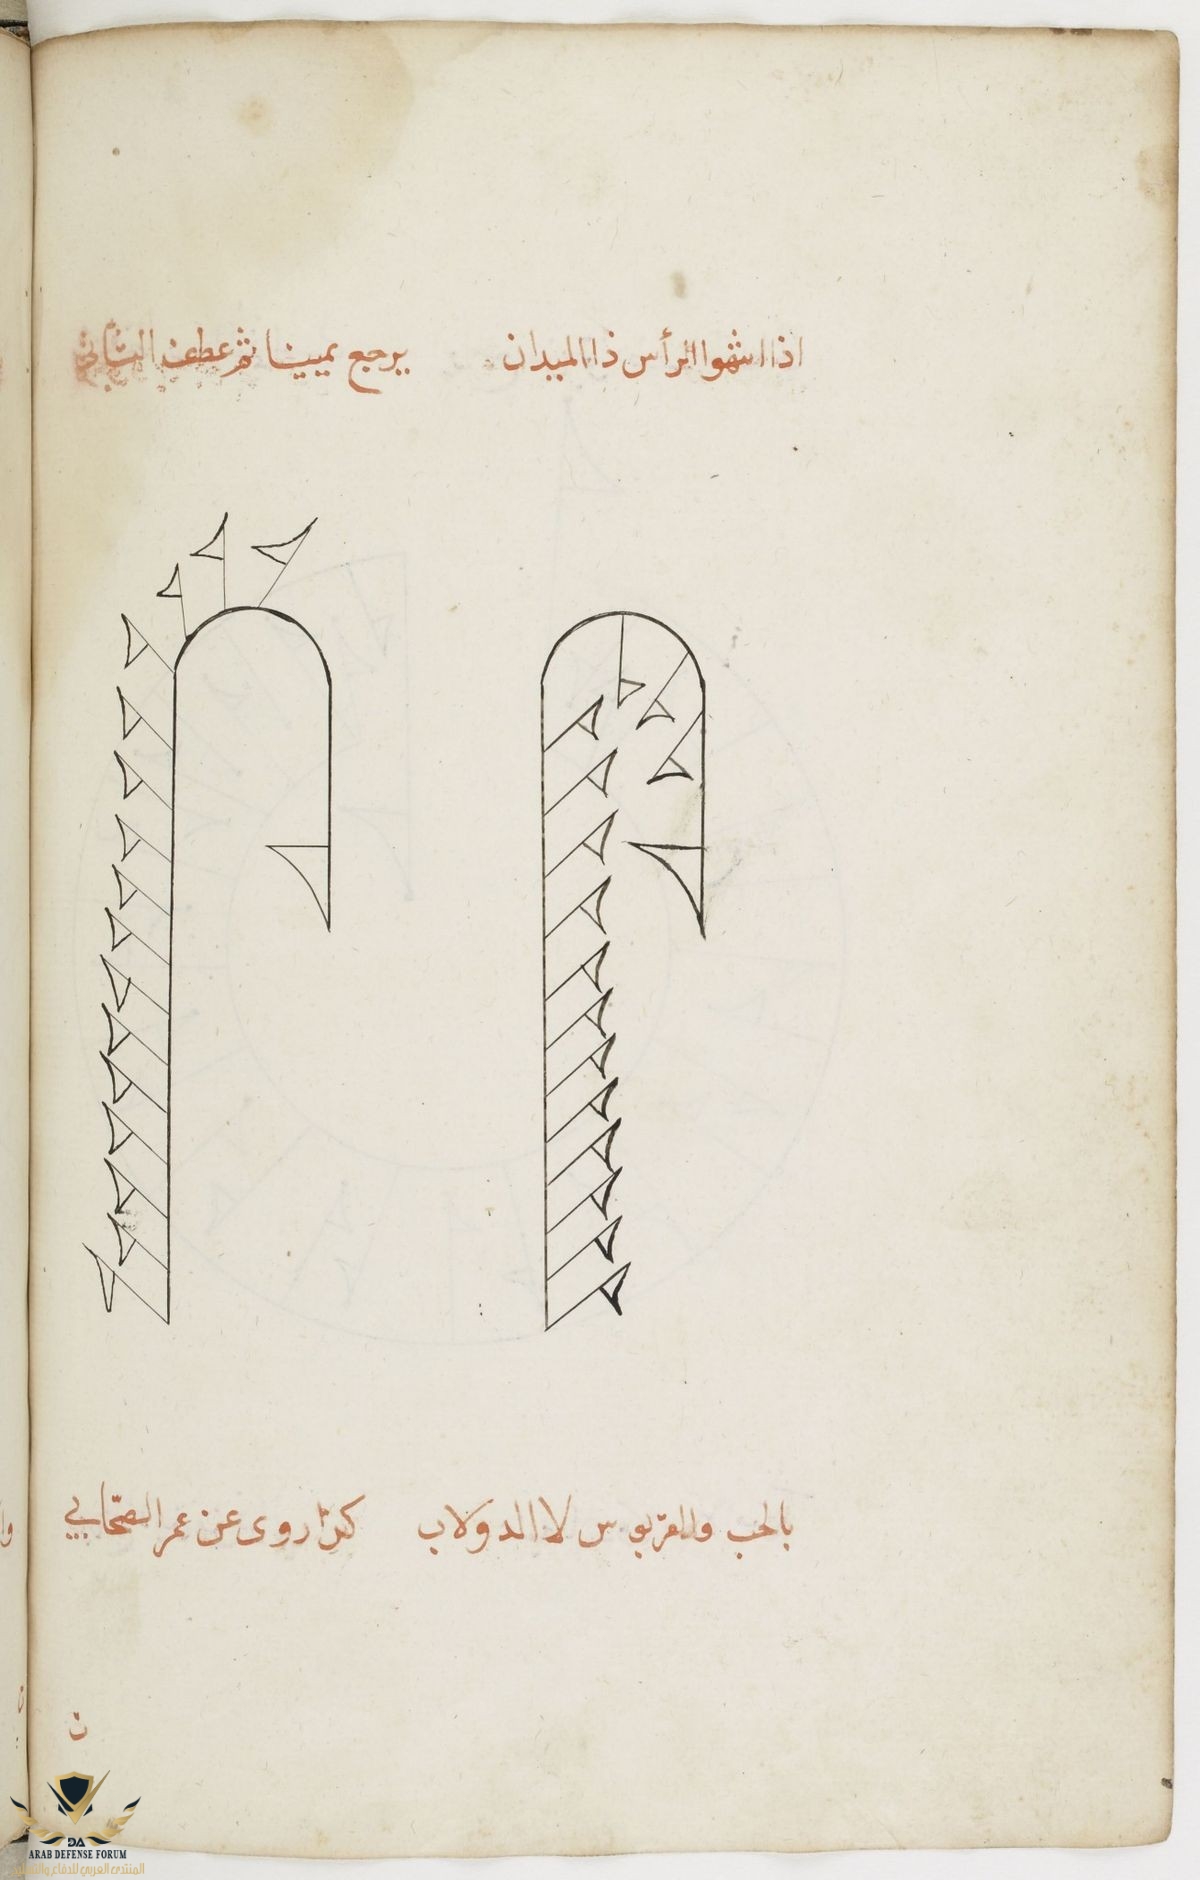 اذا انتهوا الرأس ذا الميدان يرجع يمينا ثم عطف الثاني
بالجنب والقربوس لا الدولاب كذا روى عن عمر الصحابي
ن
ARAB DEFENSE FORUM
المنتدى العربي للدفاع والتسليح